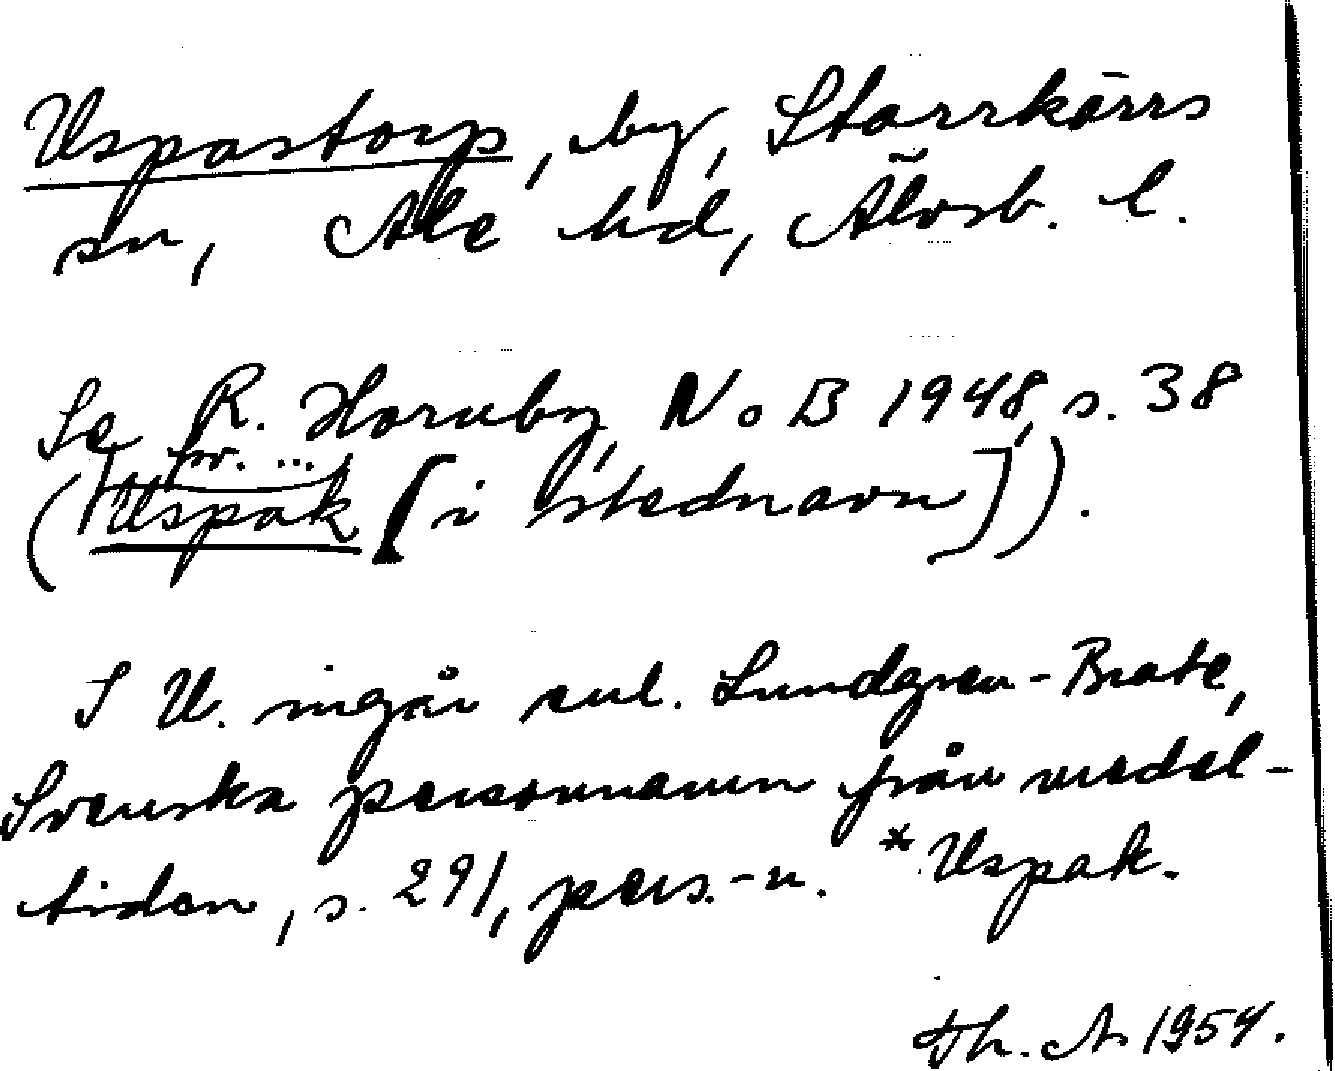 Uspastorp, by, Starrkärrs
sn, Ale hd, Älvsb. l.
Se R. Hornby, NoB 1948, s. 38
fv. ...
(Uspak [i stednavn]).
I U. ingår enl. Lundgren-Brate,
Svenska personnamn från medel-
tiden, s. 291, pers.-n. *Uspak.
Th. A 1954.